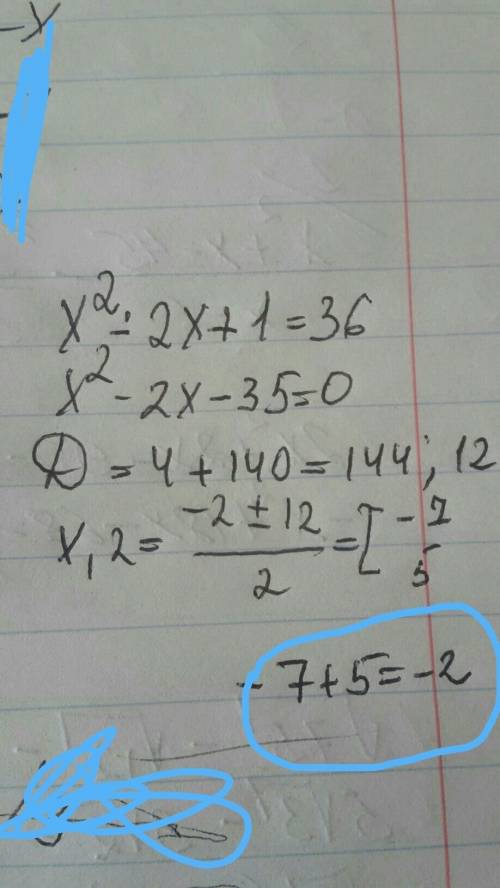 -x
x² - 2x + 1 = 36
x² - 2x - 35 = 0
D = 4 + 140 = 144; 12
x,2 = (-2 ± 12)/2 = [ -7
5
-7+5=-2